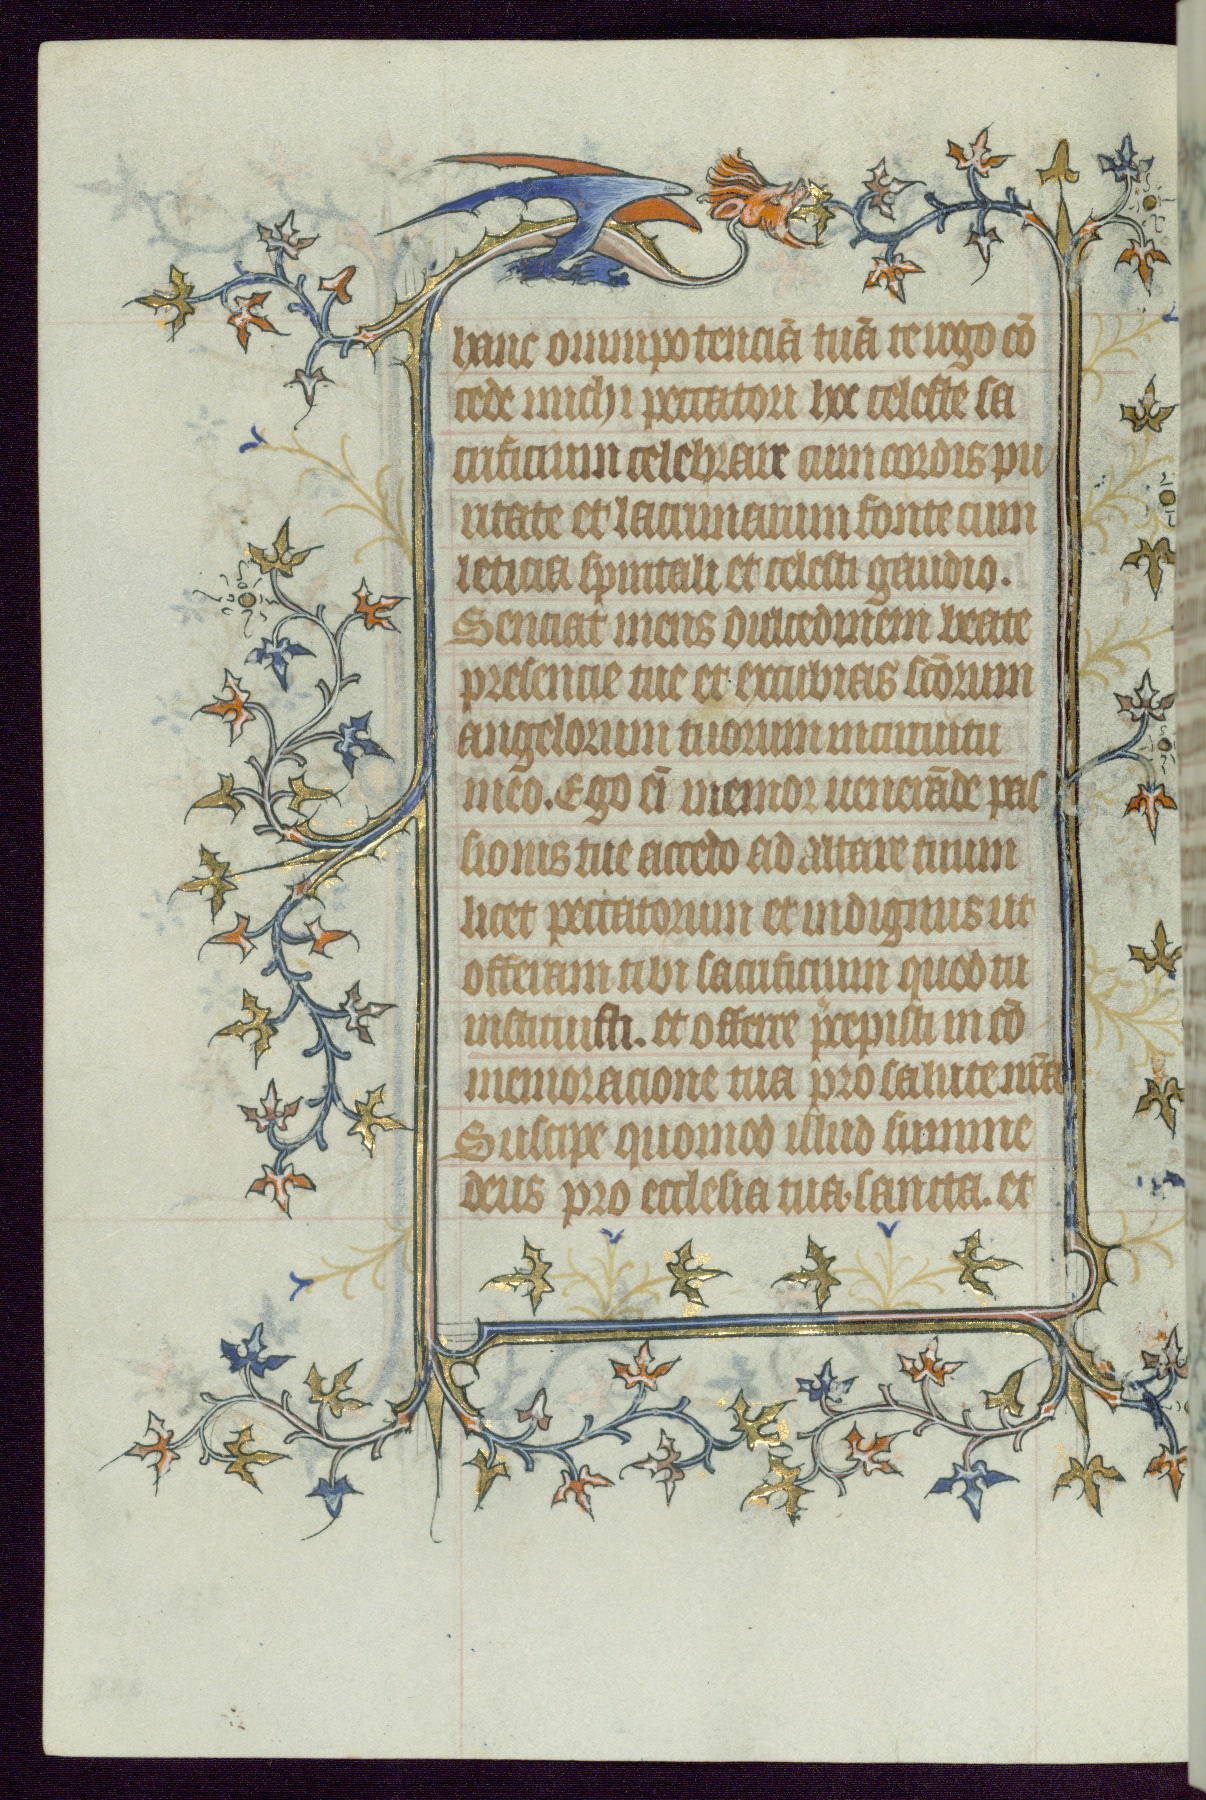 hanc omnipotenciā tuā te rogo cō
cede michi peccatori hoc celeste sa
crificium celebrare cum cordis pu
ritate et lacrimarum fonte cum
leticia spiritali et celesti gaudio.
Senciat mens dulcedinem beate
presencie tue et excubias scōrum
angelorum tuorum in circuitu
meo. Ego ei memor uenerāde pas
sionis tue accedo ad altare tuum
licet peccatorum et indignus ut
offeram tibi sacrificium quod tu
instituisti. et offerre precepisti in cō
memoracione tua pro salute nr̄a
Suscipe quomod istud summe
deus pro ecclesia tua sancta. et